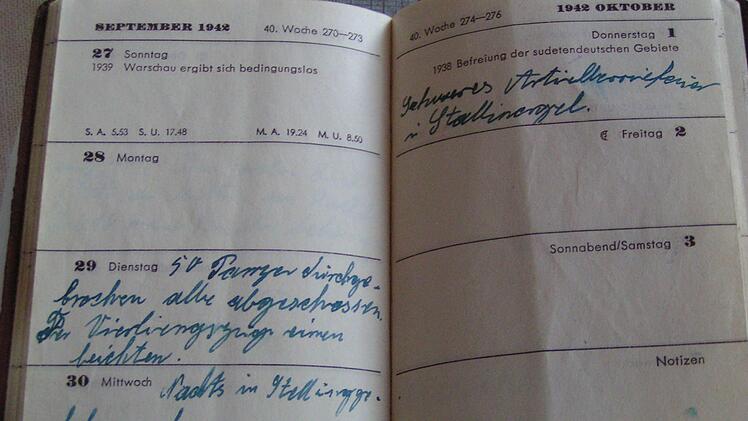 SEPTEMBER 1942 40. Woche 270—273
27 Sonntag
1939 Warschau ergibt sich bedingungslos
S. A. 5.53 S. U. 17.48 M. A. 19.24 M. U. 8.50
28 Montag
29 Dienstag 50 Panzer durchge-
brochen alle abgeschossen.
Der Vierlingszug einen
leichten.
30 Mittwoch Nachts in Stellung ge-
40. Woche 274—276 1942 OKTOBER
Donnerstag 1
1938 Befreiung der sudetendeutschen Gebiete
Schweres Artilleriefeuer
in
Freitag 2
Sonnabend/Samstag 3
Notizen